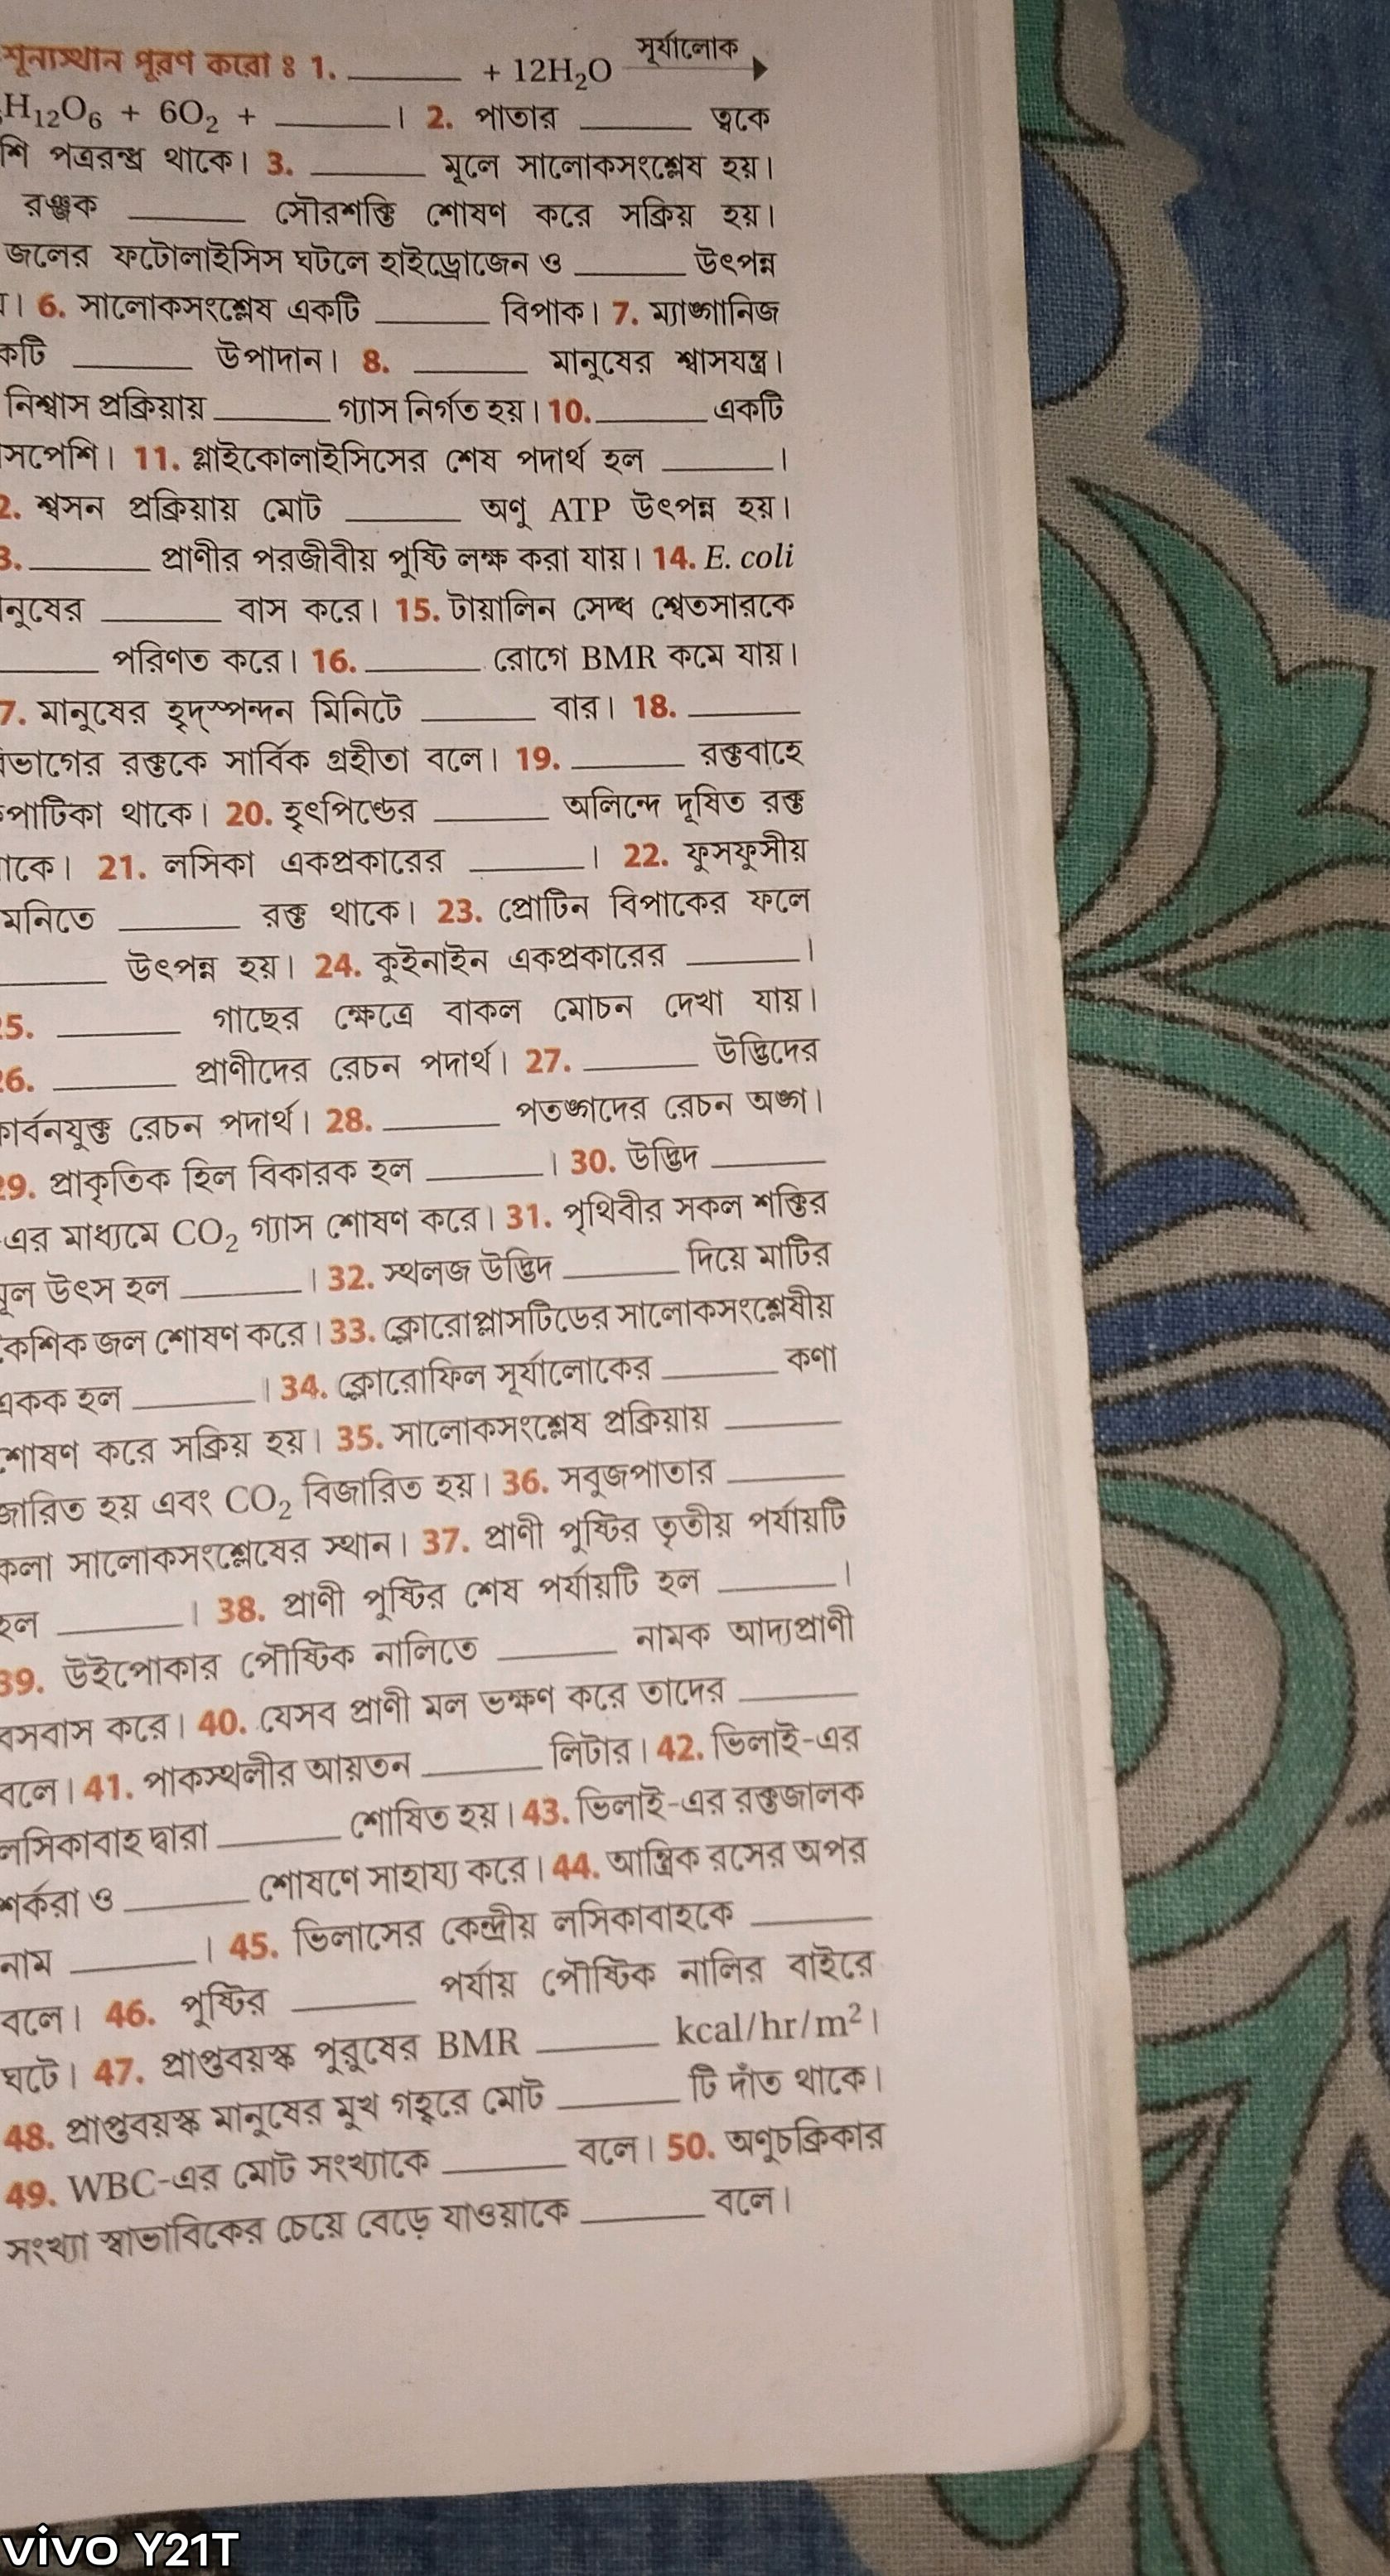 শূন্যস্থান পূরণ করো ঃ 1. ______ + 12H₂O সূর্যালোক
H₁₂O₆ + 6O₂ + ______। 2. পাতার ______ ত্বকে
শি পত্ররন্ধ্র থাকে। 3. ______ মূলে সালোকসংশ্লেষ হয়।
রঞ্জক ______ সৌরশক্তি শোষণ করে সক্রিয় হয়।
জলের ফটোলাইসিস ঘটলে হাইড্রোজেন ও ______ উৎপন্ন
। 6. সালোকসংশ্লেষ একটি ______ বিপাক। 7. ম্যাঙ্গানিজ
কটি ______ উপাদান। 8. ______ মানুষের শ্বাসযন্ত্র।
নিশ্বাস প্রক্রিয়ায় ______ গ্যাস নির্গত হয়। 10. ______ একটি
সপেশি। 11. গ্লাইকোলাইসিসের শেষ পদার্থ হল ______।
2. শ্বসন প্রক্রিয়ায় মোট ______ অণু ATP উৎপন্ন হয়।
3. ______ প্রাণীর পরজীবীয় পুষ্টি লক্ষ করা যায়। 14. E. coli
নুষের ______ বাস করে। 15. টায়ালিন সেদ্ধ শ্বেতসারকে
______ পরিণত করে। 16. ______ রোগে BMR কমে যায়।
7. মানুষের হৃদ্‌স্পন্দন মিনিটে ______ বার। 18. ______
বিভাগের রক্তকে সার্বিক গ্রহীতা বলে। 19. ______ রক্তবাহে
কপাটিকা থাকে। 20. হৃৎপিণ্ডের ______ অলিন্দে দূষিত রক্ত
াকে। 21. লসিকা একপ্রকারের ______। 22. ফুসফুসীয়
মনিতে ______ রক্ত থাকে। 23. প্রোটিন বিপাকের ফলে
______ উৎপন্ন হয়। 24. কুইনাইন একপ্রকারের ______।
25. ______ গাছের ক্ষেত্রে বাকল মোচন দেখা যায়।
26. ______ প্রাণীদের রেচন পদার্থ। 27. ______ উদ্ভিদের
কার্বনযুক্ত রেচন পদার্থ। 28. ______ পতঙ্গদের রেচন অঙ্গ।
29. প্রাকৃতিক হিল বিকারক হল ______। 30. উদ্ভিদ ______
-এর মাধ্যমে CO₂ গ্যাস শোষণ করে। 31. পৃথিবীর সকল শক্তির
মূল উৎস হল ______। 32. স্থলজ উদ্ভিদ ______ দিয়ে মাটির
কৈশিক জল শোষণ করে। 33. ক্লোরোপ্লাসটিডের সালোকসংশ্লেষীয়
একক হল ______। 34. ক্লোরোফিল সূর্যালোকের ______ কণা
শোষণ করে সক্রিয় হয়। 35. সালোকসংশ্লেষ প্রক্রিয়ায় ______
জারিত হয় এবং CO₂ বিজারিত হয়। 36. সবুজপাতার ______
কলা সালোকসংশ্লেষের স্থান। 37. প্রাণী পুষ্টির তৃতীয় পর্যায়টি
হল ______। 38. প্রাণী পুষ্টির শেষ পর্যায়টি হল ______।
39. উইপোকার পৌষ্টিক নালিতে ______ নামক আদ্যপ্রাণী
বসবাস করে। 40. যেসব প্রাণী মল ভক্ষণ করে তাদের ______
বলে। 41. পাকস্থলীর আয়তন ______ লিটার। 42. ভিলাই-এর
লসিকাবাহ দ্বারা ______ শোষিত হয়। 43. ভিলাই-এর রক্তজালক
শর্করা ও ______ শোষণে সাহায্য করে। 44. আন্ত্রিক রসের অপর
নাম ______। 45. ভিলাসের কেন্দ্রীয় লসিকাবাহকে ______
বলে। 46. পুষ্টির ______ পর্যায় পৌষ্টিক নালির বাইরে
ঘটে। 47. প্রাপ্তবয়স্ক পুরুষের BMR ______ kcal/hr/m²।
48. প্রাপ্তবয়স্ক মানুষের মুখ গহ্বরে মোট ______ টি দাঁত থাকে।
49. WBC-এর মোট সংখ্যাকে ______ বলে। 50. অণুচক্রিকার
সংখ্যা স্বাভাবিকের চেয়ে বেড়ে যাওয়াকে ______ বলে।
vivo Y21T